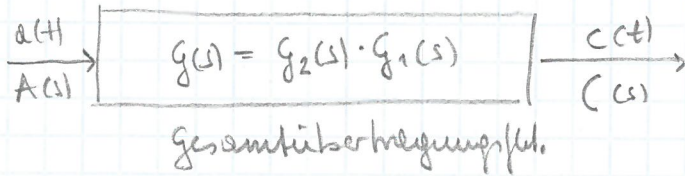 a(t)
A(s)
G(s) = G₂(s)·G₁(s)
c(t)
C(s)
Gesamtübertragungsfkt.